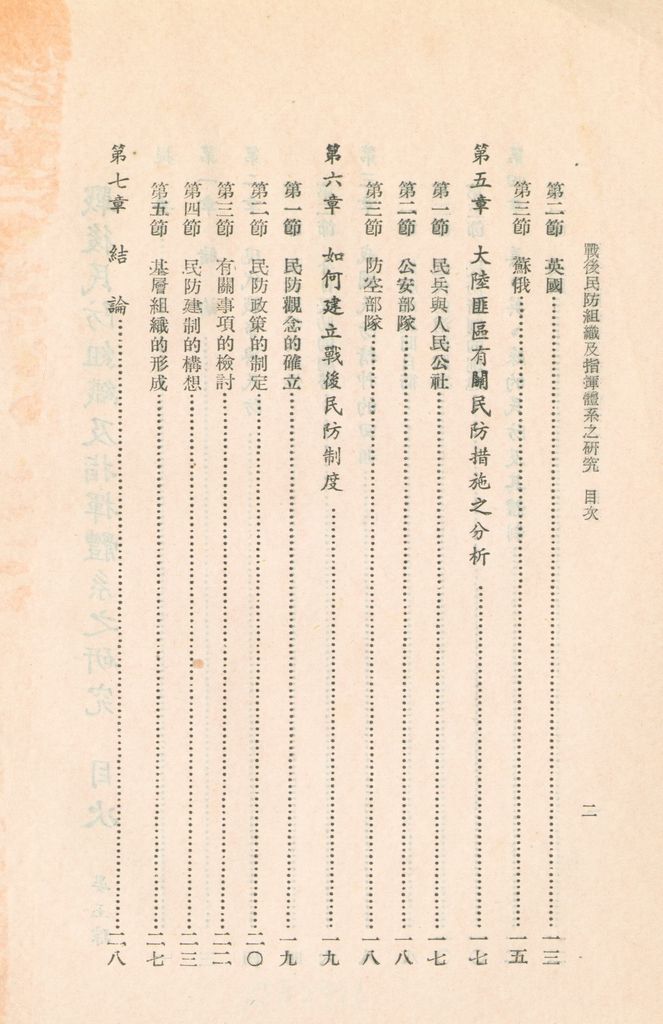 戰後民防組織及指揮體系之研究　目次　二
第二節　英國……一三
第三節　蘇俄……一五
第五章　大陸匪區有關民防措施之分析……一七
第一節　民兵與人民公社……一七
第二節　公安部隊……一八
第三節　防空部隊……一八
第六章　如何建立戰後民防制度……一九
第一節　民防觀念的確立……一九
第二節　民防政策的制定……二〇
第三節　有關事項的檢討……二二
第四節　民防建制的構想……二三
第五節　基層組織的形成……二七
第七章　結論……二八